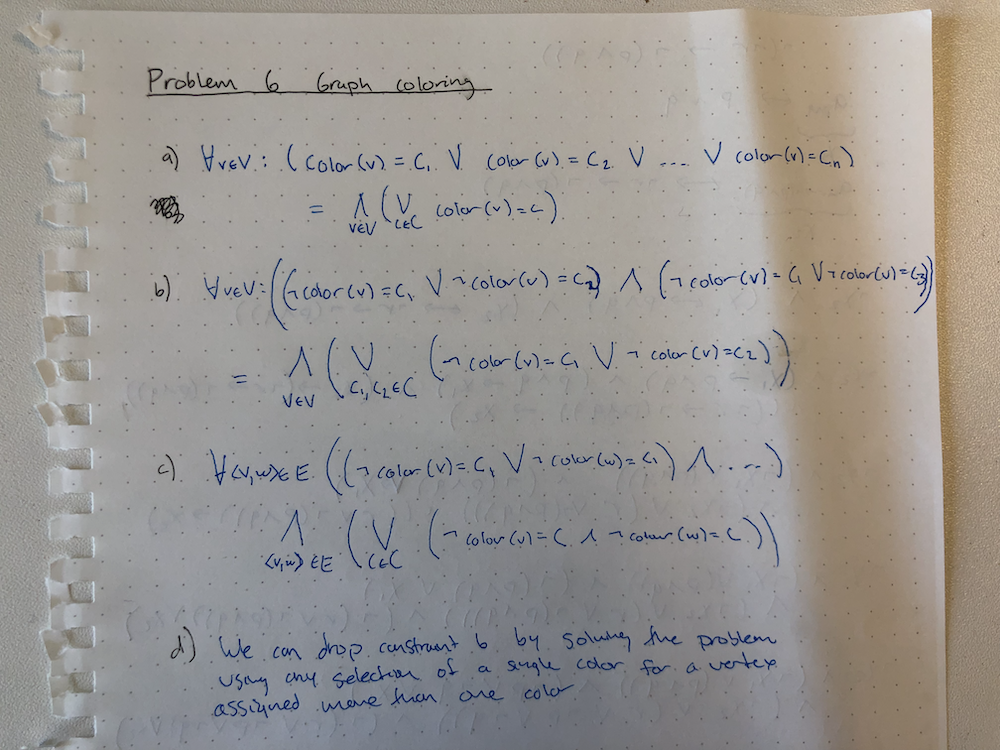 Problem 6 Graph coloring
a) ∀v∈V: (color(v) = C₁ ∨ color(v) = C₂ ∨ .... ∨ color(v) = Cₙ)
= ⋀_{v∈V} (⋁_{c∈C} color(v) = c)
b) ∀v∈V: ((¬color(v) = C₁ ∨ ¬color(v) = C₂) ∧ (¬color(v) = C₁ ∨ ¬color(v) = C₃))
= ⋀_{v∈V} (⋁_{C₁,C₂∈C} (¬color(v) = C₁ ∨ ¬color(v) = C₂))
c) ∀⟨v,w⟩∈E ((¬color(v) = C₁ ∨ ¬color(w) = C₁) ∧ ....)
⋀_{⟨v,w⟩∈E} (⋁_{c∈C} (¬color(v) = C ∧ ¬color(w) = C))
d) We can drop constraint b by solving the problem
using any selection of a single color for a vertex
assigned more than one color